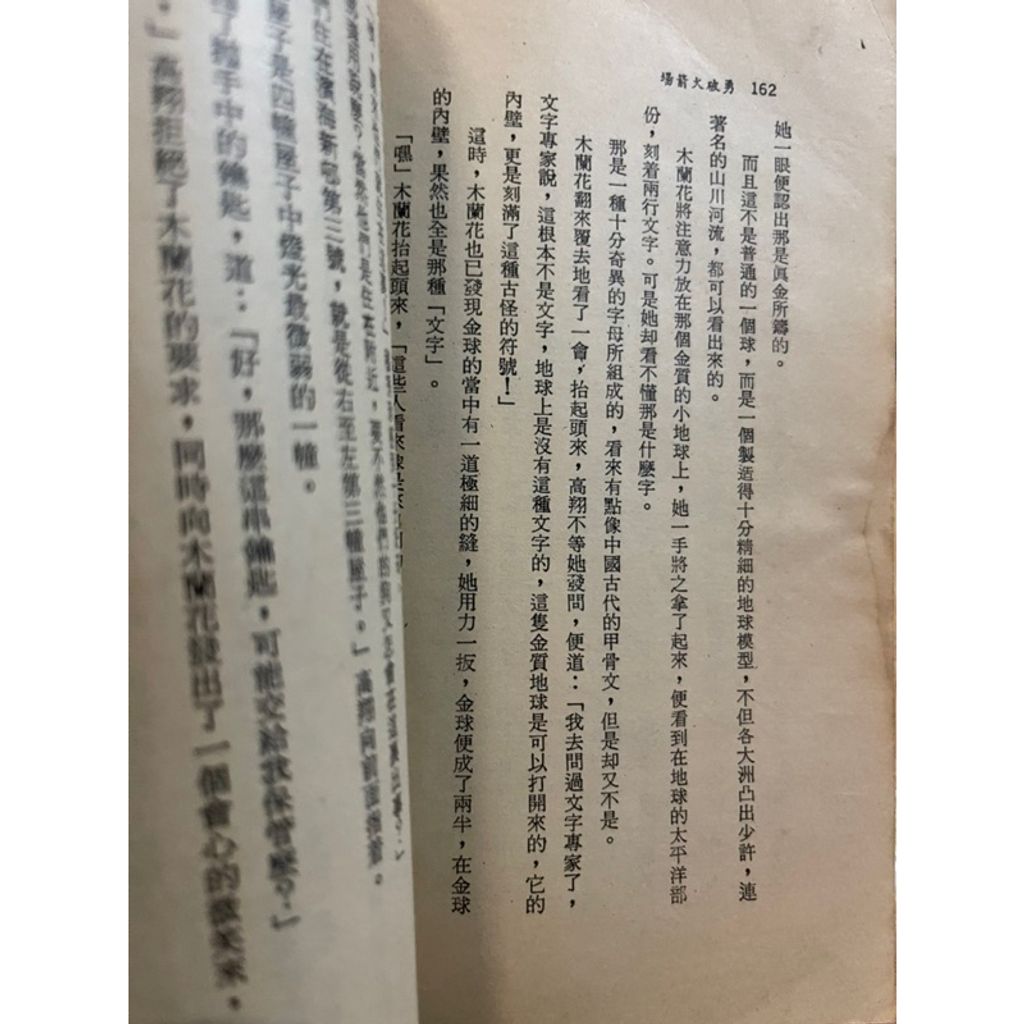 162 勇破火箭場
她一眼便認出那是眞金所鑄的。
而且這不是普通的一個球，而是一個製造得十分精細的地球模型，不但各大洲凸出少許，連
著名的山川河流，都可以看出來的。
木蘭花將注意力放在那個金質的小地球上，她一手將之拿了起來，便看到在地球的太平洋部
份，刻着兩行文字。可是她却看不懂那是什麼字。
那是一種十分奇異的字母所組成的，看來有點像中國古代的甲骨文，但是却又不是。
木蘭花翻來覆去地看了一會，抬起頭來，高翔不等她發問，便道：「我去問過文字專家了，
文字專家說，這根本不是文字，地球上是沒有這種文字的，這隻金質地球是可以打開來的，它的
內壁，更是刻滿了這種古怪的符號！」
這時，木蘭花也已發現金球的當中有一道極細的縫，她用力一扳，金球便成了兩半，在金球
的內壁，果然也全是那種「文字」。
「嘿」木蘭花抬起頭來，「這些人看來
住在濱海新邨第三號，就是從右至左第三幢屋子。」高翔向前面指着。
屋子是四幢屋子中燈光最微弱的一幢。
手中的鑰匙，道：「好，那麼這串鑰匙，可能交給我保管麼？」
。」高翔拒絕了木蘭花的要求，同時向木蘭花發出了一個會心的微笑來，